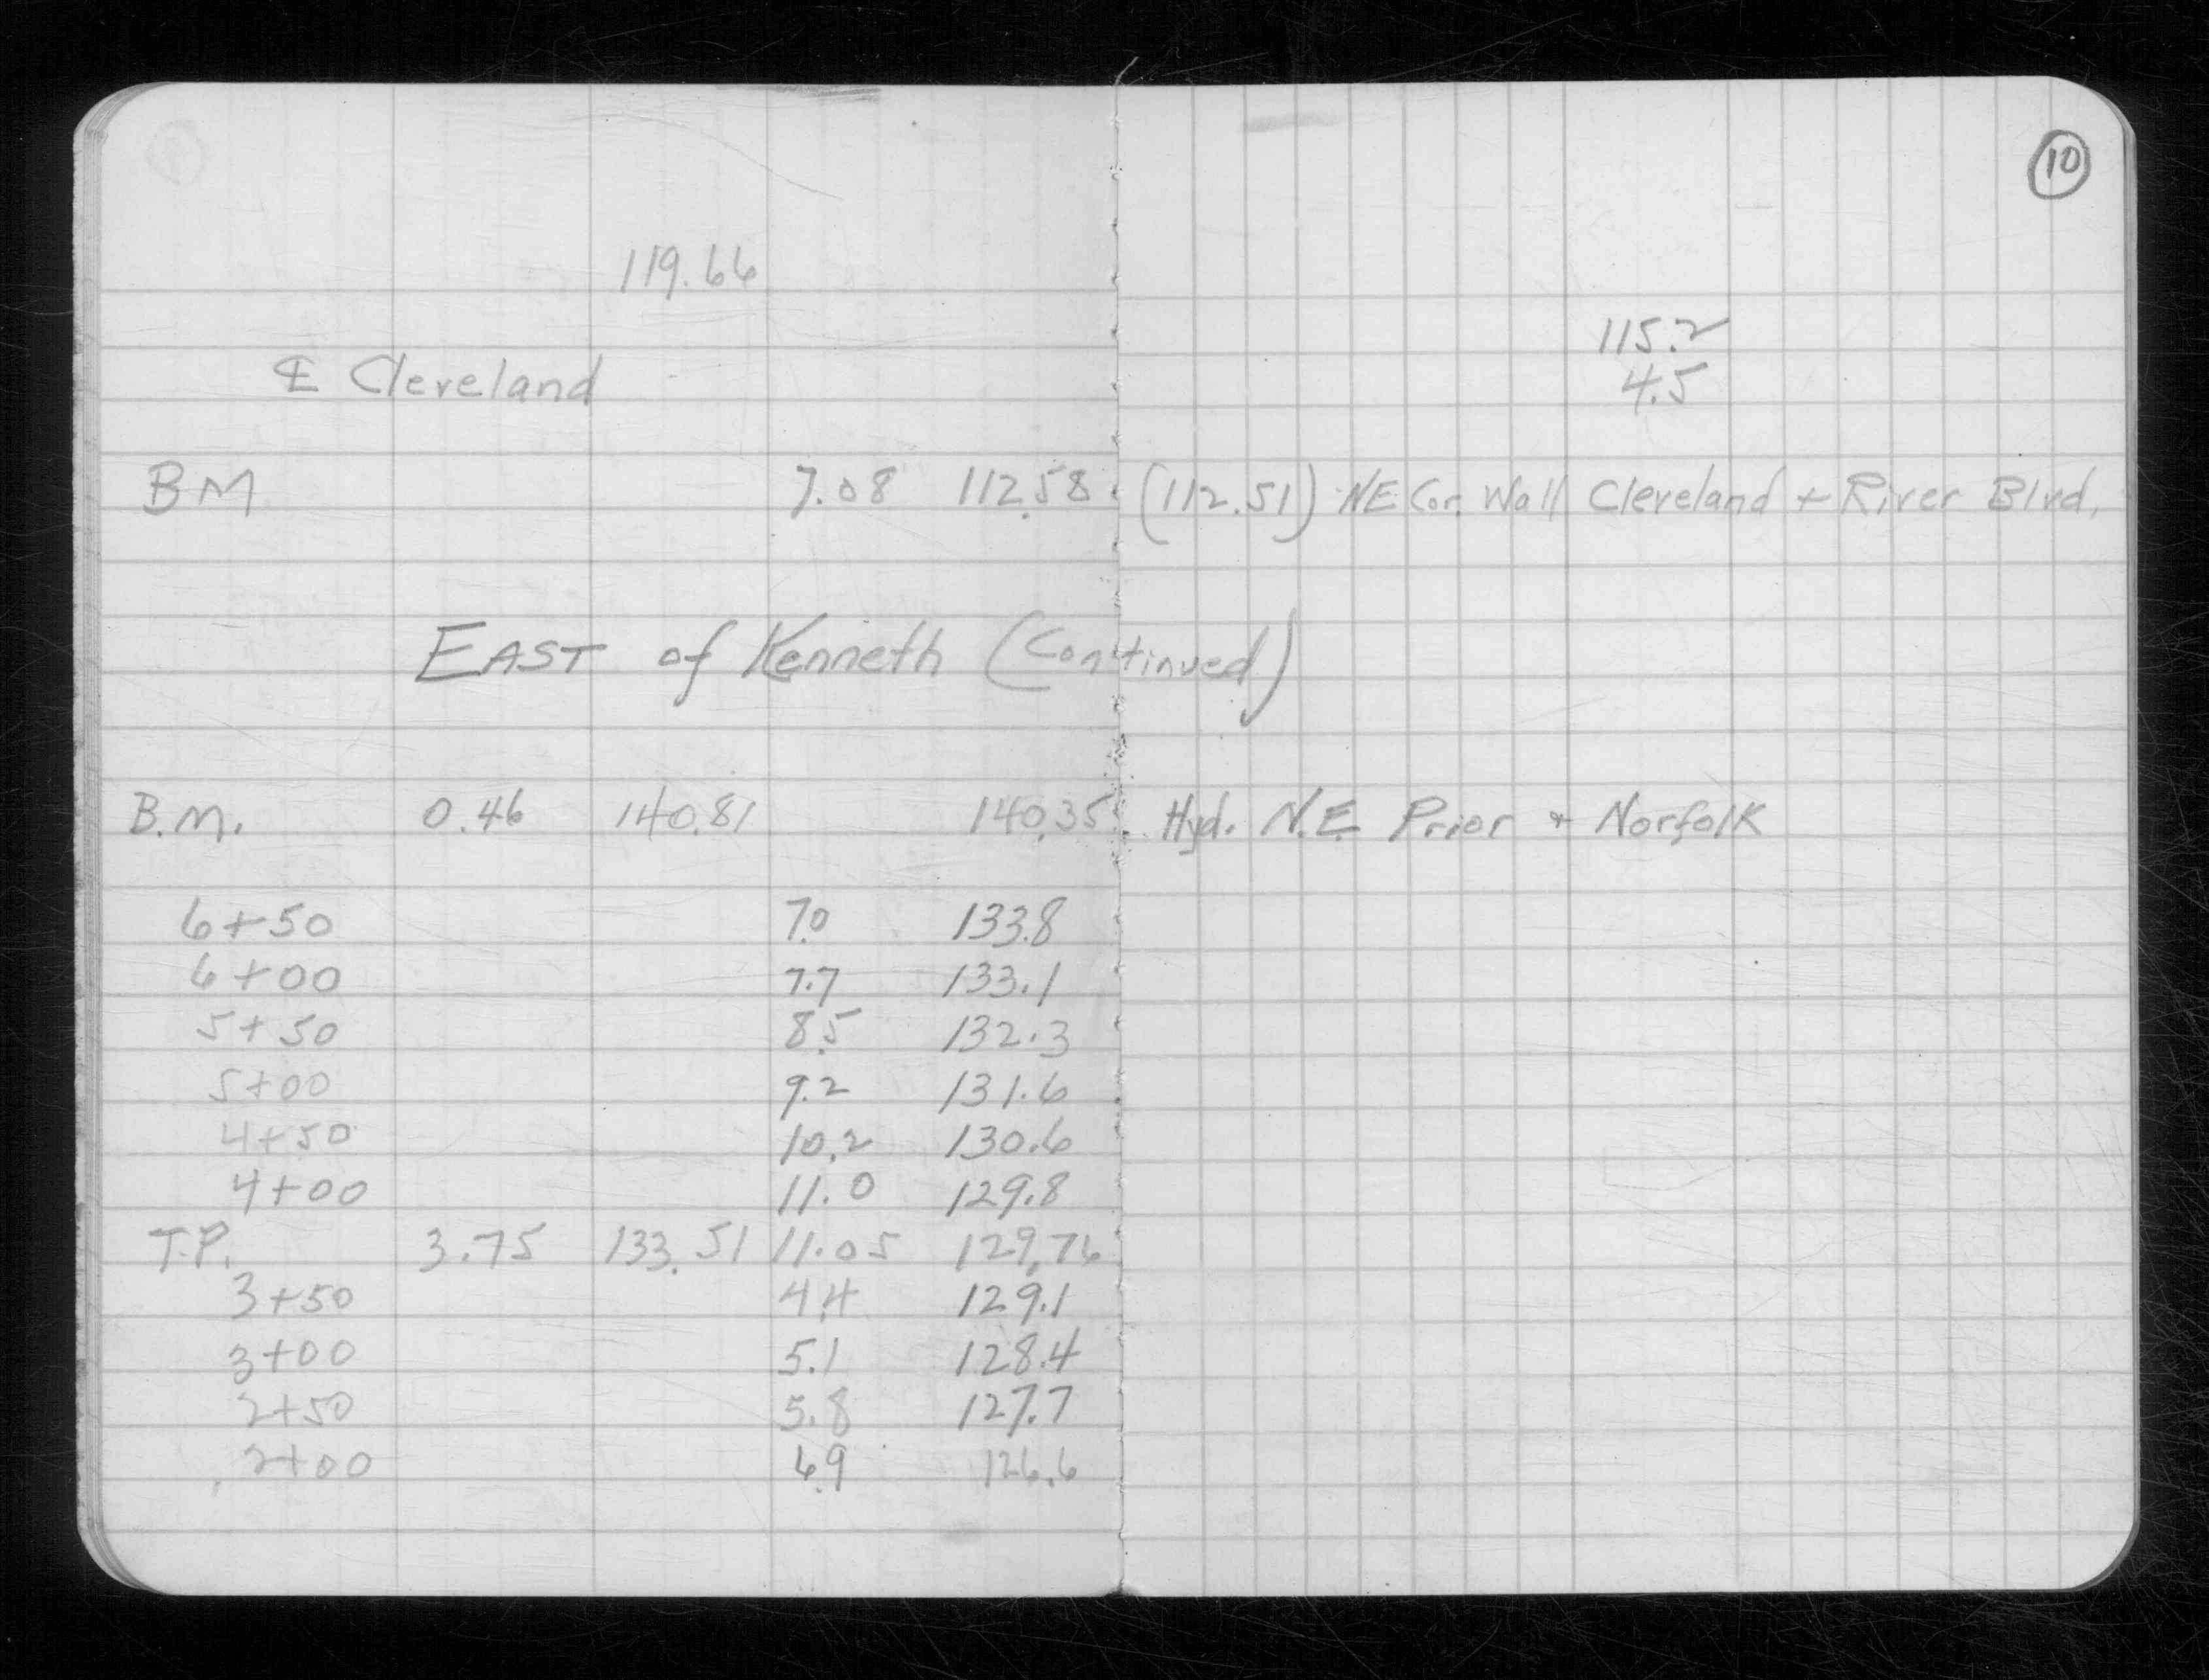 10
119.66
115.2
℄ Cleveland 4.5
BM 7.08 112.58 (112.51) NE Cor. Wall Cleveland + River Blvd.
EAST of Kenneth (Continued)
B.M. 0.46 140.81 140.35 Hyd. N.E. Prior + Norfolk
6+50 7.0 133.8
6+00 7.7 133.1
5+50 8.5 132.3
5+00 9.2 131.6
4+50 10.2 130.6
4+00 11.0 129.8
T.P. 3.75 133.51 11.05 129.76
3+50 4.4 129.1
3+00 5.1 128.4
2+50 5.8 127.7
2+00 6.9 126.6